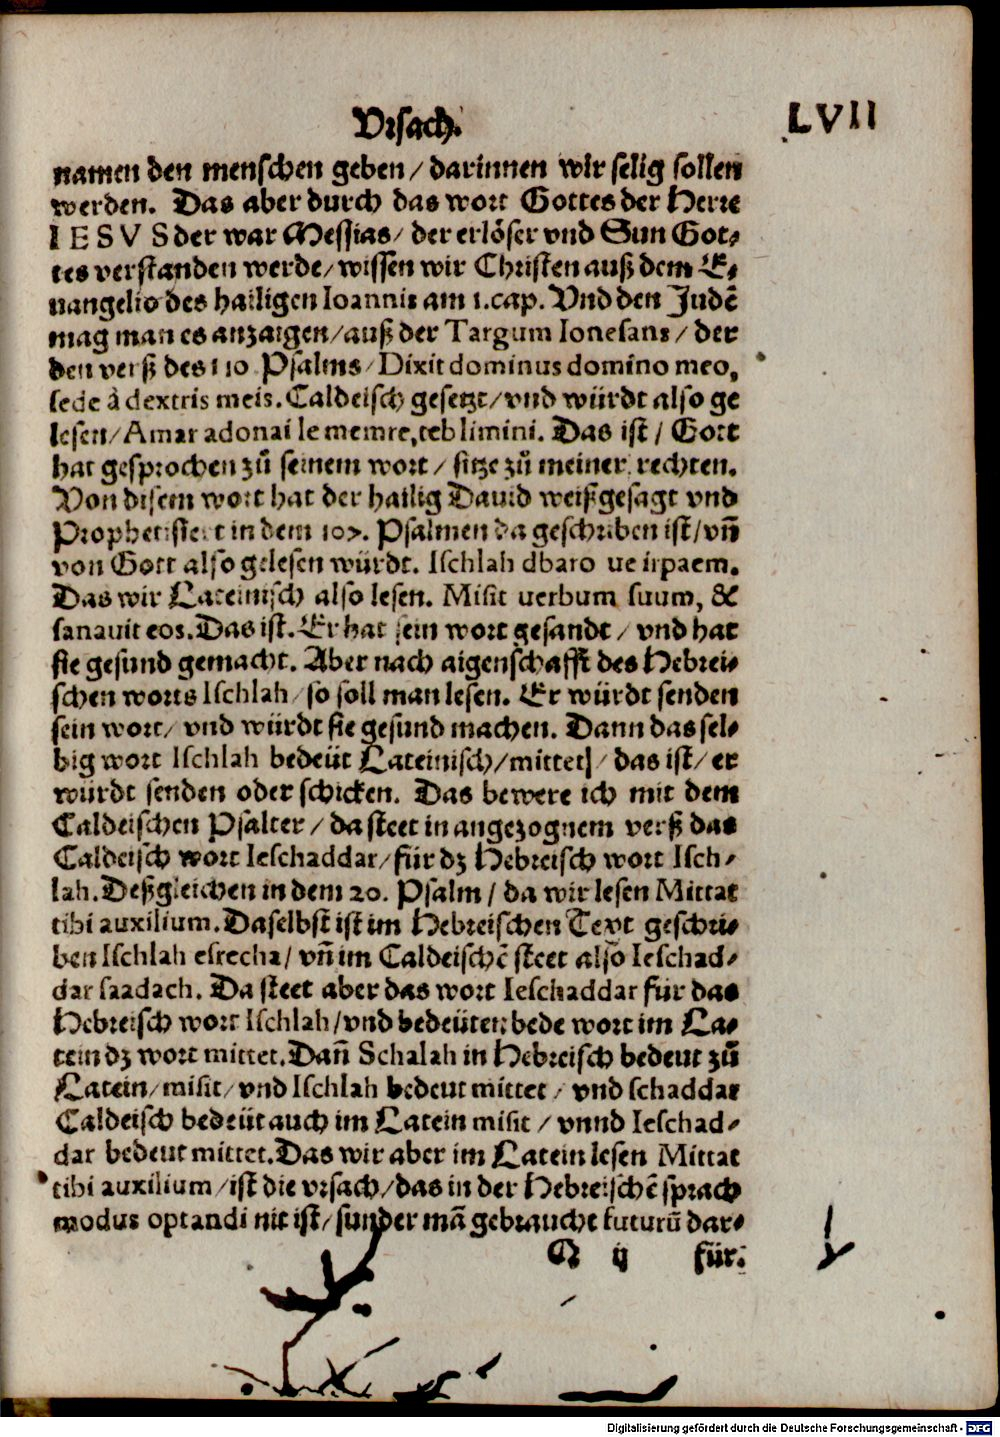 Vrsach. LVII
namen den menschen geben / darinnen wir selig sollen
werden. Das aber durch das wort Gottes der Herre
I E S V S der war Messias / der erlöser vnd Sun Got-
tes verstanden werde / wissen wir Christen auß dem E-
uangelio des hailigen Ioannis am 1. cap. Vnd den Judē
mag man es anzaigen / auß der Targum Ionesans / der
den verß des 110 Psalms / Dixit dominus domino meo,
sede à dextris meis. Caldeisch gesetzt / vnd würdt also ge
lesen / Amar adonai le memre, teb limini. Das ist / Gott
hat gesprochen zů seinem wort / sitze zů meiner rechten.
Von disem wort hat der hailig Dauid weißgesagt vnd
Prophetisiert in dem 107. Psalmen da geschriben ist / vñ
von Gott also gelesen würdt. Ischlah dbaro ue irpaem.
Das wir Lateinisch also lesen. Misit uerbum suum, &
sanauit eos. Das ist. Er hat sein wort gesandt / vnd hat
sie gesund gemacht. Aber nach aigenschafft des Hebrei-
schen worts Ischlah / so soll man lesen. Er würdt senden
sein wort / vnd würdt sie gesund machen. Dann das sel-
big wort Ischlah bedeüt Lateinisch / mittet / das ist / er
würdt senden oder schicken. Das bewere ich mit dem
Caldeischen Psalter / da steet in angezognem verß das
Caldeisch wort Ieschaddar / für dz Hebreisch wort Isch-
lah. Deßgleichen in dem 20. Psalm / da wir lesen Mittat
tibi auxilium. Daselbst ist im Hebreischen Text geschri-
ben Ischlah esrecha / vñ im Caldeischē steet also Ieschad-
dar saadach. Da steet aber das wort Ieschaddar für das
Hebreisch wort Ischlah / vnd bedeüten bede wort im La-
tein dz wort mittet. Dañ Schalah in Hebreisch bedeut zů
Latein / misit / vnd Ischlah bedeut mittet / vnd schaddar
Caldeisch bedeüt auch im Latein misit / vnnd Ieschad-
dar bedeut mittet. Das wir aber im Latein lesen Mittat
tibi auxilium / ist die vrsach / das in der Hebreischē sprach
modus optandi nit ist / sunder mã gebraucht futurū dar-
Q ij für:
Digitalisierung gefördert durch die Deutsche Forschungsgemeinschaft - DFG